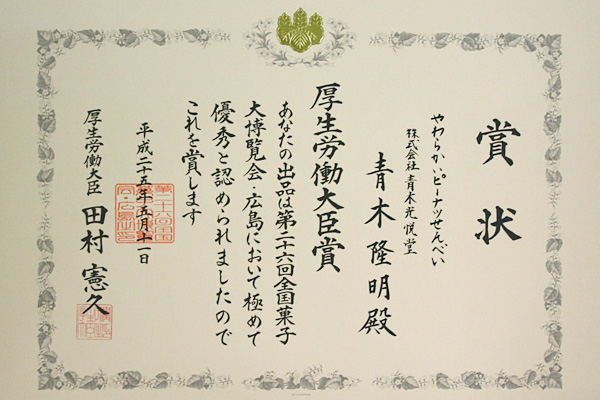 賞状
やわらかいピーナツせんべい
株式会社 青木光悦堂
青木隆明殿
厚生労働大臣賞
あなたの出品は第二十六回全国菓子
大博覧会・広島において極めて
優秀と認められましたので
これを賞します
平成二十五年五月十一日
厚生労働大臣 田村憲久